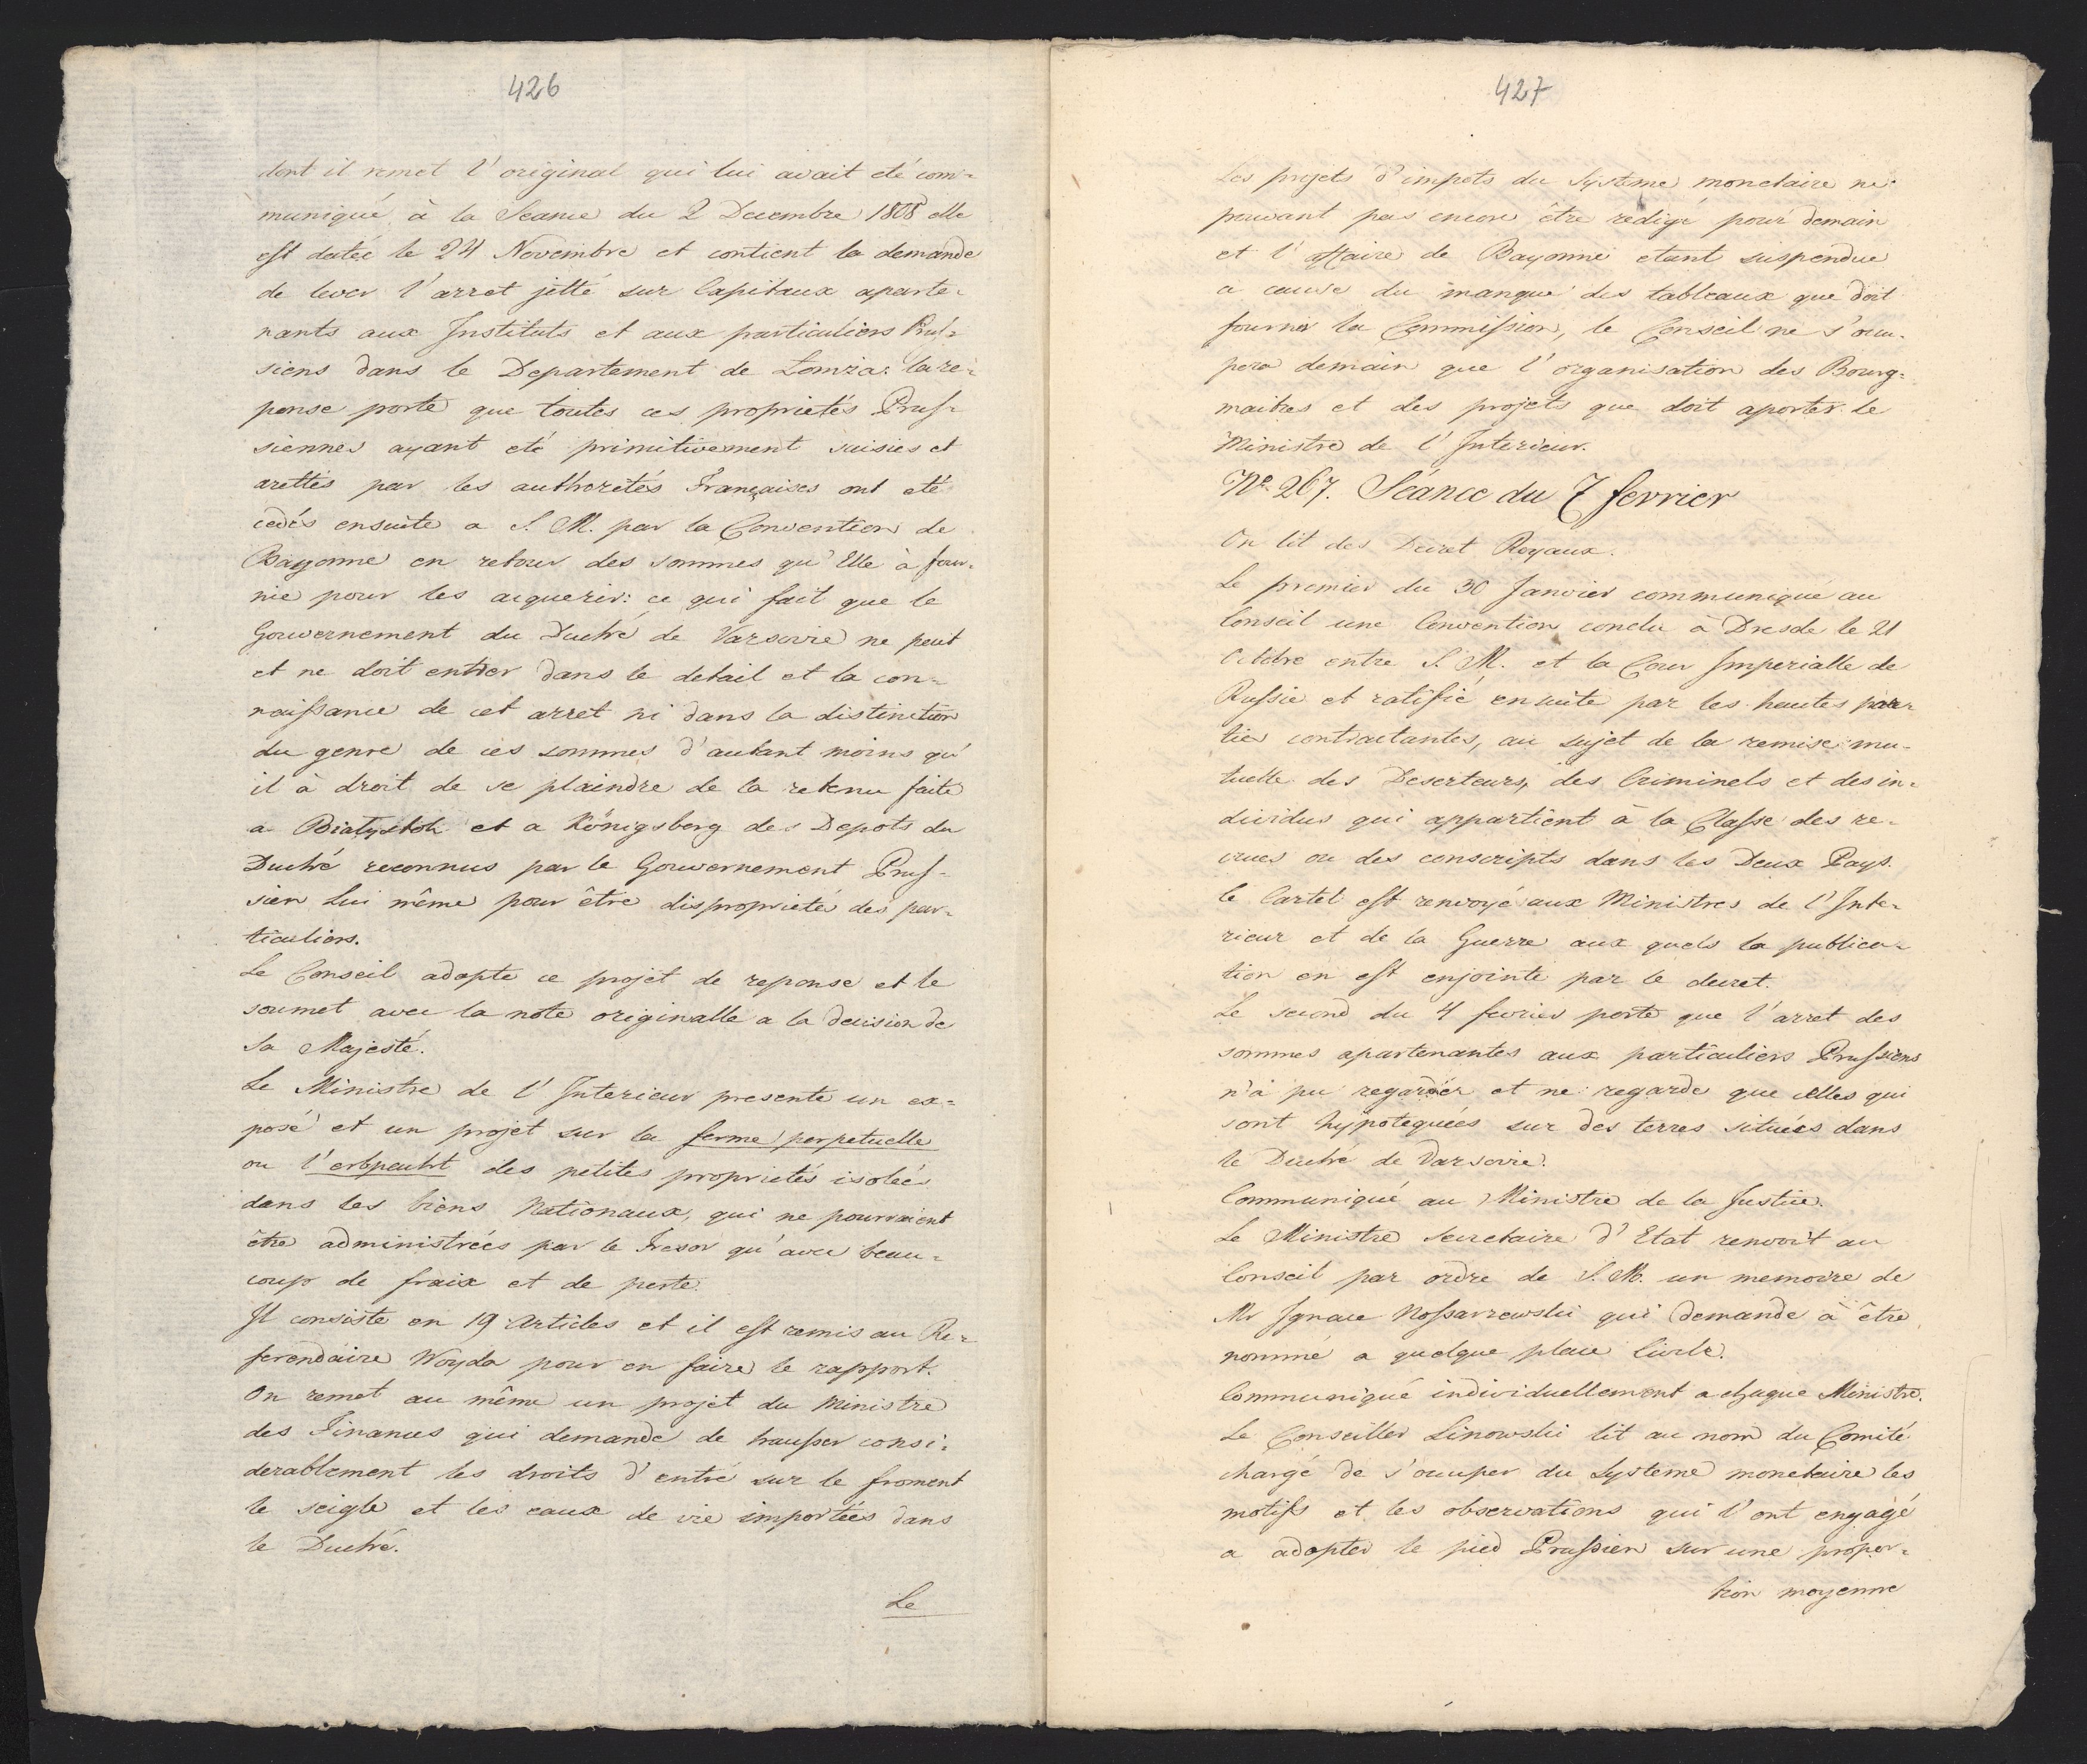 426
dont il remet l'original qui lui avait eté com=
muniqué à la Seance du 2 Decembre 1808 elle
est datée le 24 Novembre et contient la demande
de lever l'arret jetté sur Capitaux aparte-
nants aux Instituts et aux particuliers Prus-
siens dans le Departement de Lomza: la re-
ponse porte que toutes ces proprietés Prus-
siennes ayant eté primitivement saisies et
arettés par les authoretés Françaises ont eté
cedés ensuite a S. M. par la Convention de
Bayonne en retour des sommes qu'Elle à four-
nie pour les aquerir: ce qui fait que le
Gouvernement du Duché de Varsovie ne peut
et ne doit entrer dans le detail et la con-
naissance de cet arret ni dans la distinction
du genre de ces sommes d'autant moins qu'
il à droit de se plaindre de la retenu faite
a Białystok et a Königsberg des Depots du
Duché reconnus par le Gouvernement Prus-
sien Lui même pour être dispropriété des par-
ticuliers.
Le Conseil adopte ce projet de reponse et le
soumet avec la note originalle a la decision de
Sa Majesté.
Le Ministre de l'Interieur presente un ex=
posé et un projet sur la ferme perpetuelle
ou l'erbpacht des petites proprietés isolées
dans les biens Nationaux, qui ne pourraient
être administrées par le Tresor qu'avec beau-
coup de fraix et de perte.
Il consiste en 19 Articles et il est remis au Re-
ferendaire Woyda pour en faire le rapport.
On remet au même un projet du Ministre
des Finances qui demande de hausser consi-
derablement les droits d'entré sur le froment
le seigle et les eaux de vie importées dans
le Duché.
Le
427
Les projets d'impots du Systeme monetaire ne
pouvant pas encore être redigé pour demain
et l'affaire de Bayonne etant suspendue
a cause du manque des tableaux que doit
fournir la Commission, le Conseil ne s'occu-
pera demain que l'organisation des Bourg-
maitres et des projets que doit aporter le
Ministre de l'Interieur.
No. 267. Séance du 7 fevrier
On lit des Decret Royaux.
Le premier du 30 Janvier communiqué au
Conseil une Convention conclu à Dresde le 21
Octobre entre S. M. et la Cour Imperialle de
Russie et ratifié ensuite par les hautes par-
ties contractantes, au sujet de la remise mu-
tuelle des Deserteurs, des Criminels et des in-
dividus qui appartient à la Classe des re-
crues ou des conscripts dans les Deux Pays.
Le Cartel est renvoyé aux Ministres de l'Inte-
rieur et de la Guerre aux quels la publica-
tion en est enjointe par le decret.
Le second du 4 fevrier porte que l'arret des
sommes apartenantes aux particuliers Prussiens
n'à pu regarder et ne regarde que celles qui
sont hypotequées sur des terres situées dans
le Duché de Varsovie.
Communiqué au Ministre de la Justice.
Le Ministre Secretaire d'Etat renvoit au
Conseil par ordre de S. M. un memoire de
Mr Ignace Nossarzewski qui demande à être
nommé a quelque place Civile.
Communiqué individuellement a chaque Ministre.
Le Conseiller Linowski lit au nom du Comité
chargé de s'occuper du Systeme monetaire les
motifs et les observations qui l'ont engagé
a adopter le pied Prussien sur une propor-
tion moyenne